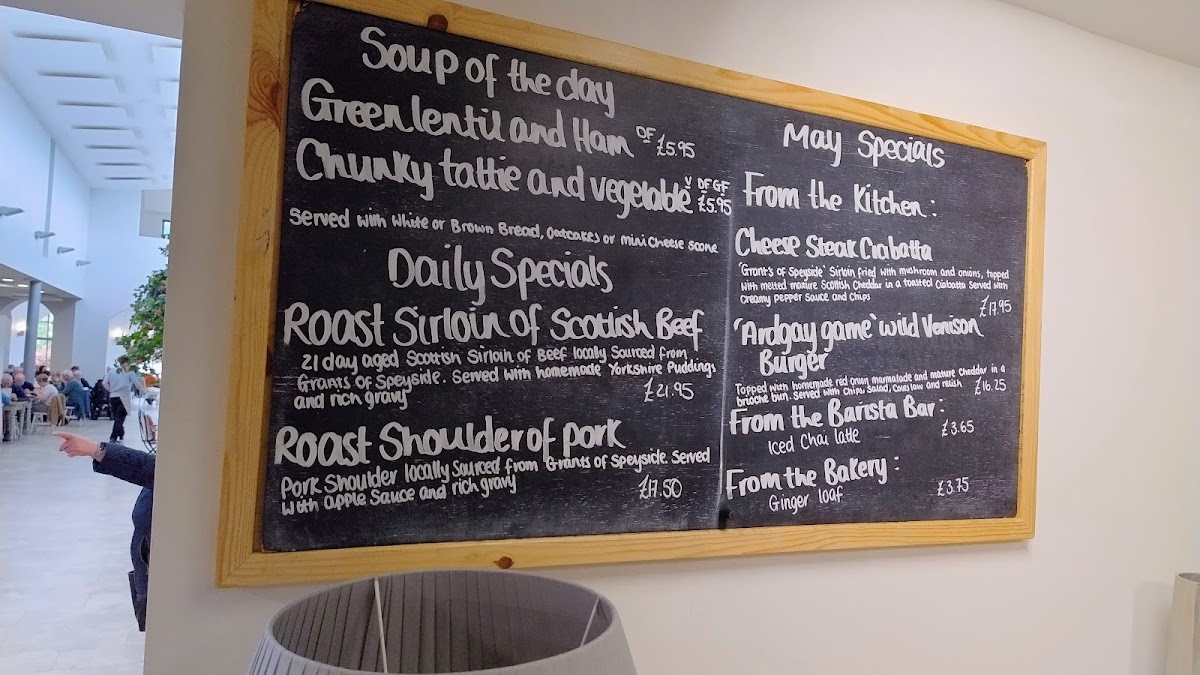 Soup of the day
Green lentil and Ham DF £5.95
Chunky tattie and vegetable V DF GF £5.95
Served with White or Brown Bread, oatcakes or mini cheese scone
Daily Specials
Roast Sirloin of Scottish Beef
21 day aged Scottish Sirloin of Beef locally Sourced from
Grants of Speyside. Served with homemade Yorkshire Puddings
and rich gravy £21.95
Roast Shoulder of pork
Pork Shoulder locally Sourced from Grants of Speyside. Served
With apple Sauce and rich gravy £17.50
May Specials
From the Kitchen:
Cheese Steak Ciabatta
'Grant's of Speyside' Sirloin fried with mushroom and onions, topped
with melted mature Scottish Cheddar in a toasted Ciabatta Served with
Creamy pepper Sauce and Chips £17.95
'Ardgay game' wild Venison
Burger
Topped with homemade red onion marmalade and mature Cheddar in a
brioche bun. Served with Chips, Salad, Coleslaw and relish £16.25
From the Barista Bar:
Iced Chai latte £3.65
From the Bakery:
Ginger loaf £3.75